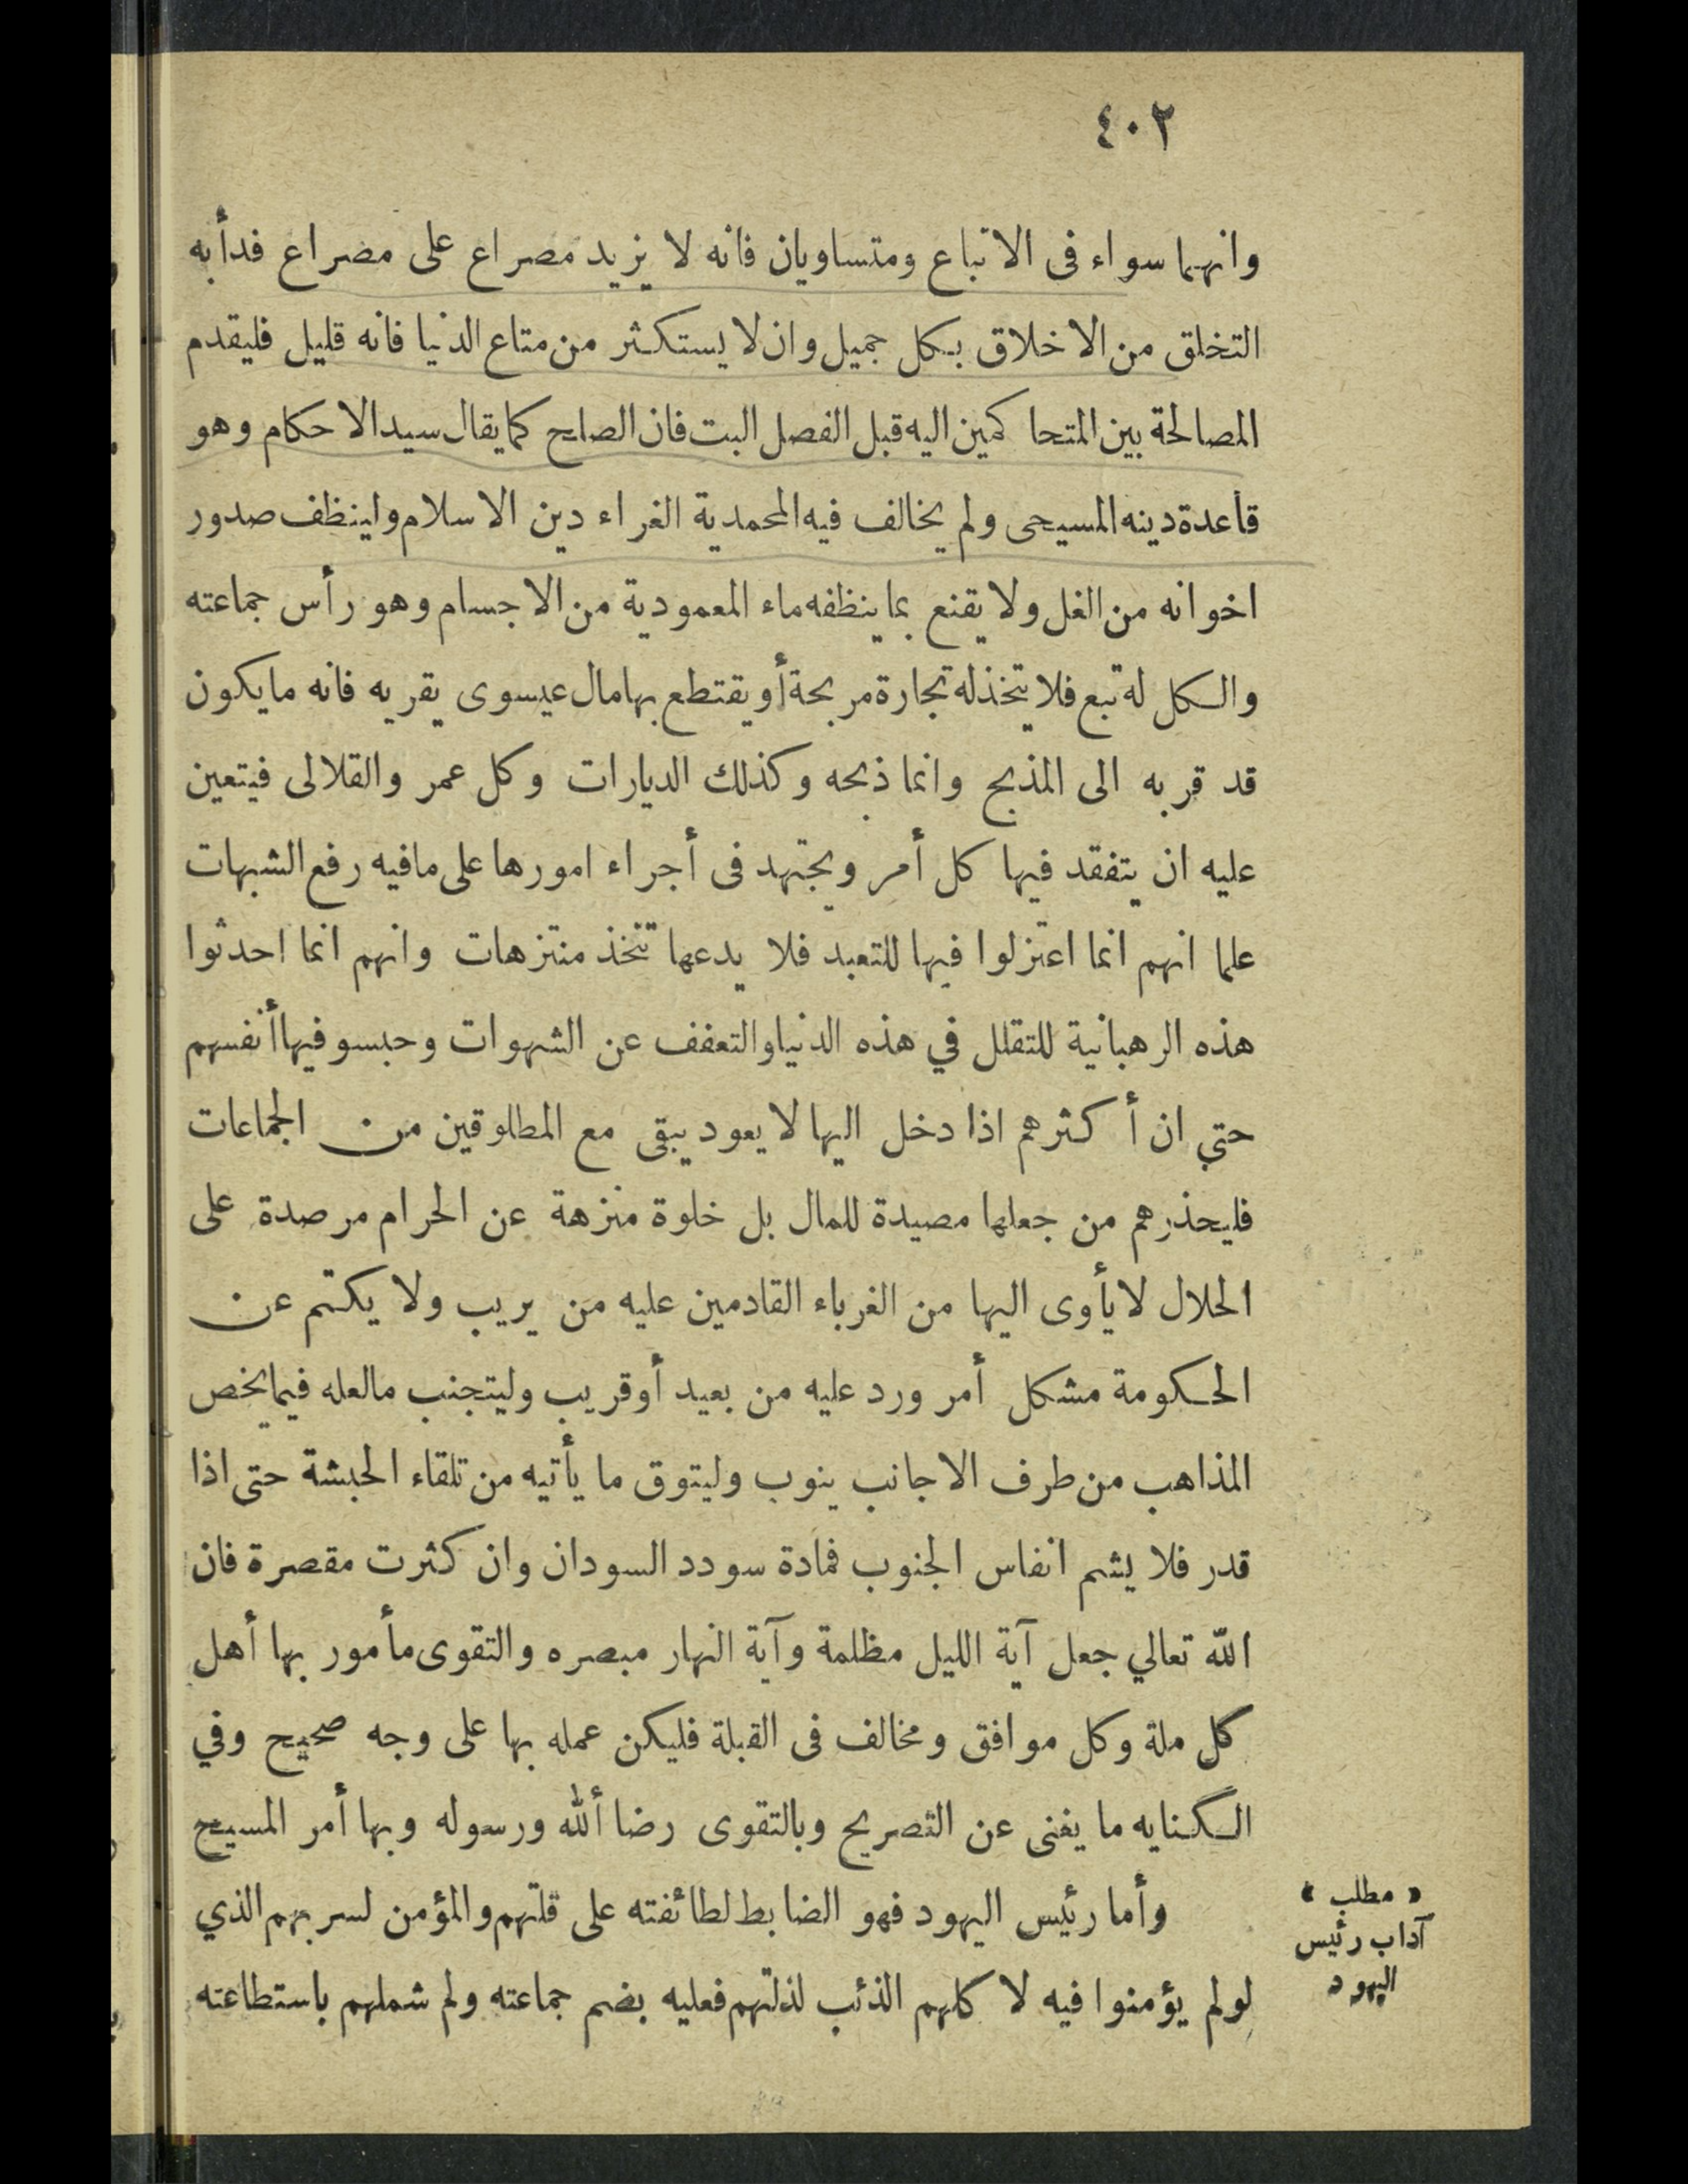 ٤٠٢
وانهما سواء فى الاتباع ومتساويان فانه لا يزيد مصراع على مصراع فدأبه
التخلق من الاخلاق بكل جميل وان لا يستكثر من متاع الدنيا فانه قليل فليقدم
المصالحة بين المتحاكمين اليه قبل الفصل البت فان الصلح كما يقال سيد الاحكام وهو
قاعدة دينه المسيحى ولم يخالف فيه المحمدية الغراء دين الاسلام ولينظف صدور
اخوانه من الغل ولا يقنع بما ينظفه ماء المعمودية من الاجسام وهو رأس جماعته
والكل له تبع فلا يتخذ له تجارة مربحة أو يقتطع بها مال عيسوى يقربه فانه ما يكون
قد قربه الى المذبح وانما ذبحه وكذلك الديارات وكل عمر والقلالى فيتعين
عليه ان يتفقد فيها كل أمر ويجتهد فى أجراء امورها على مافيه رفع الشبهات
علما انهم انما اعتزلوا فيها للتعبد فلا يدعها تتخذ منتزهات وانهم انما احدثوا
هذه الرهبانية للتقلل في هذه الدنيا والتعفف عن الشهوات وحبسو فيها أنفسهم
حتي ان أكثرهم اذا دخل اليها لا يعود يبقى مع المطلوقين من الجماعات
فليحذرهم من جعلها مصيدة للمال بل خلوة منزهة عن الحرام مرصدة على
الحلال لا يأوى اليها من الغرباء القادمين عليه من يريب ولا يكتم عن
الحكومة مشكل أمر ورد عليه من بعيد أو قريب وليتجنب مالعله فيما يخص
المذاهب من طرف الاجانب ينوب وليتوق ما يأتيه من تلقاء الحبشة حتى اذا
قدر فلا يشم انفاس الجنوب فمادة سودد السودان وان كثرت مقصرة فان
الله تعالي جعل آية الليل مظلمة وآية النهار مبصره والتقوى مأمور بها أهل
كل ملة وكل موافق ومخالف فى القبلة فليكن عمله بها على وجه صحيح وفي
الكنايه ما يغنى عن التصريح وبالتقوى رضا ألله ورسوله وبها أمر المسيح
وأما رئيس اليهود فهو الضابط لطائفته على قلتهم والمؤمن لسربهم الذي
لولم يؤمنوا فيه لا كلهم الذئب لذلتهم فعليه بضم جماعته ولم شملهم باستطاعته
« مطلب »
آداب رئيس
اليهود